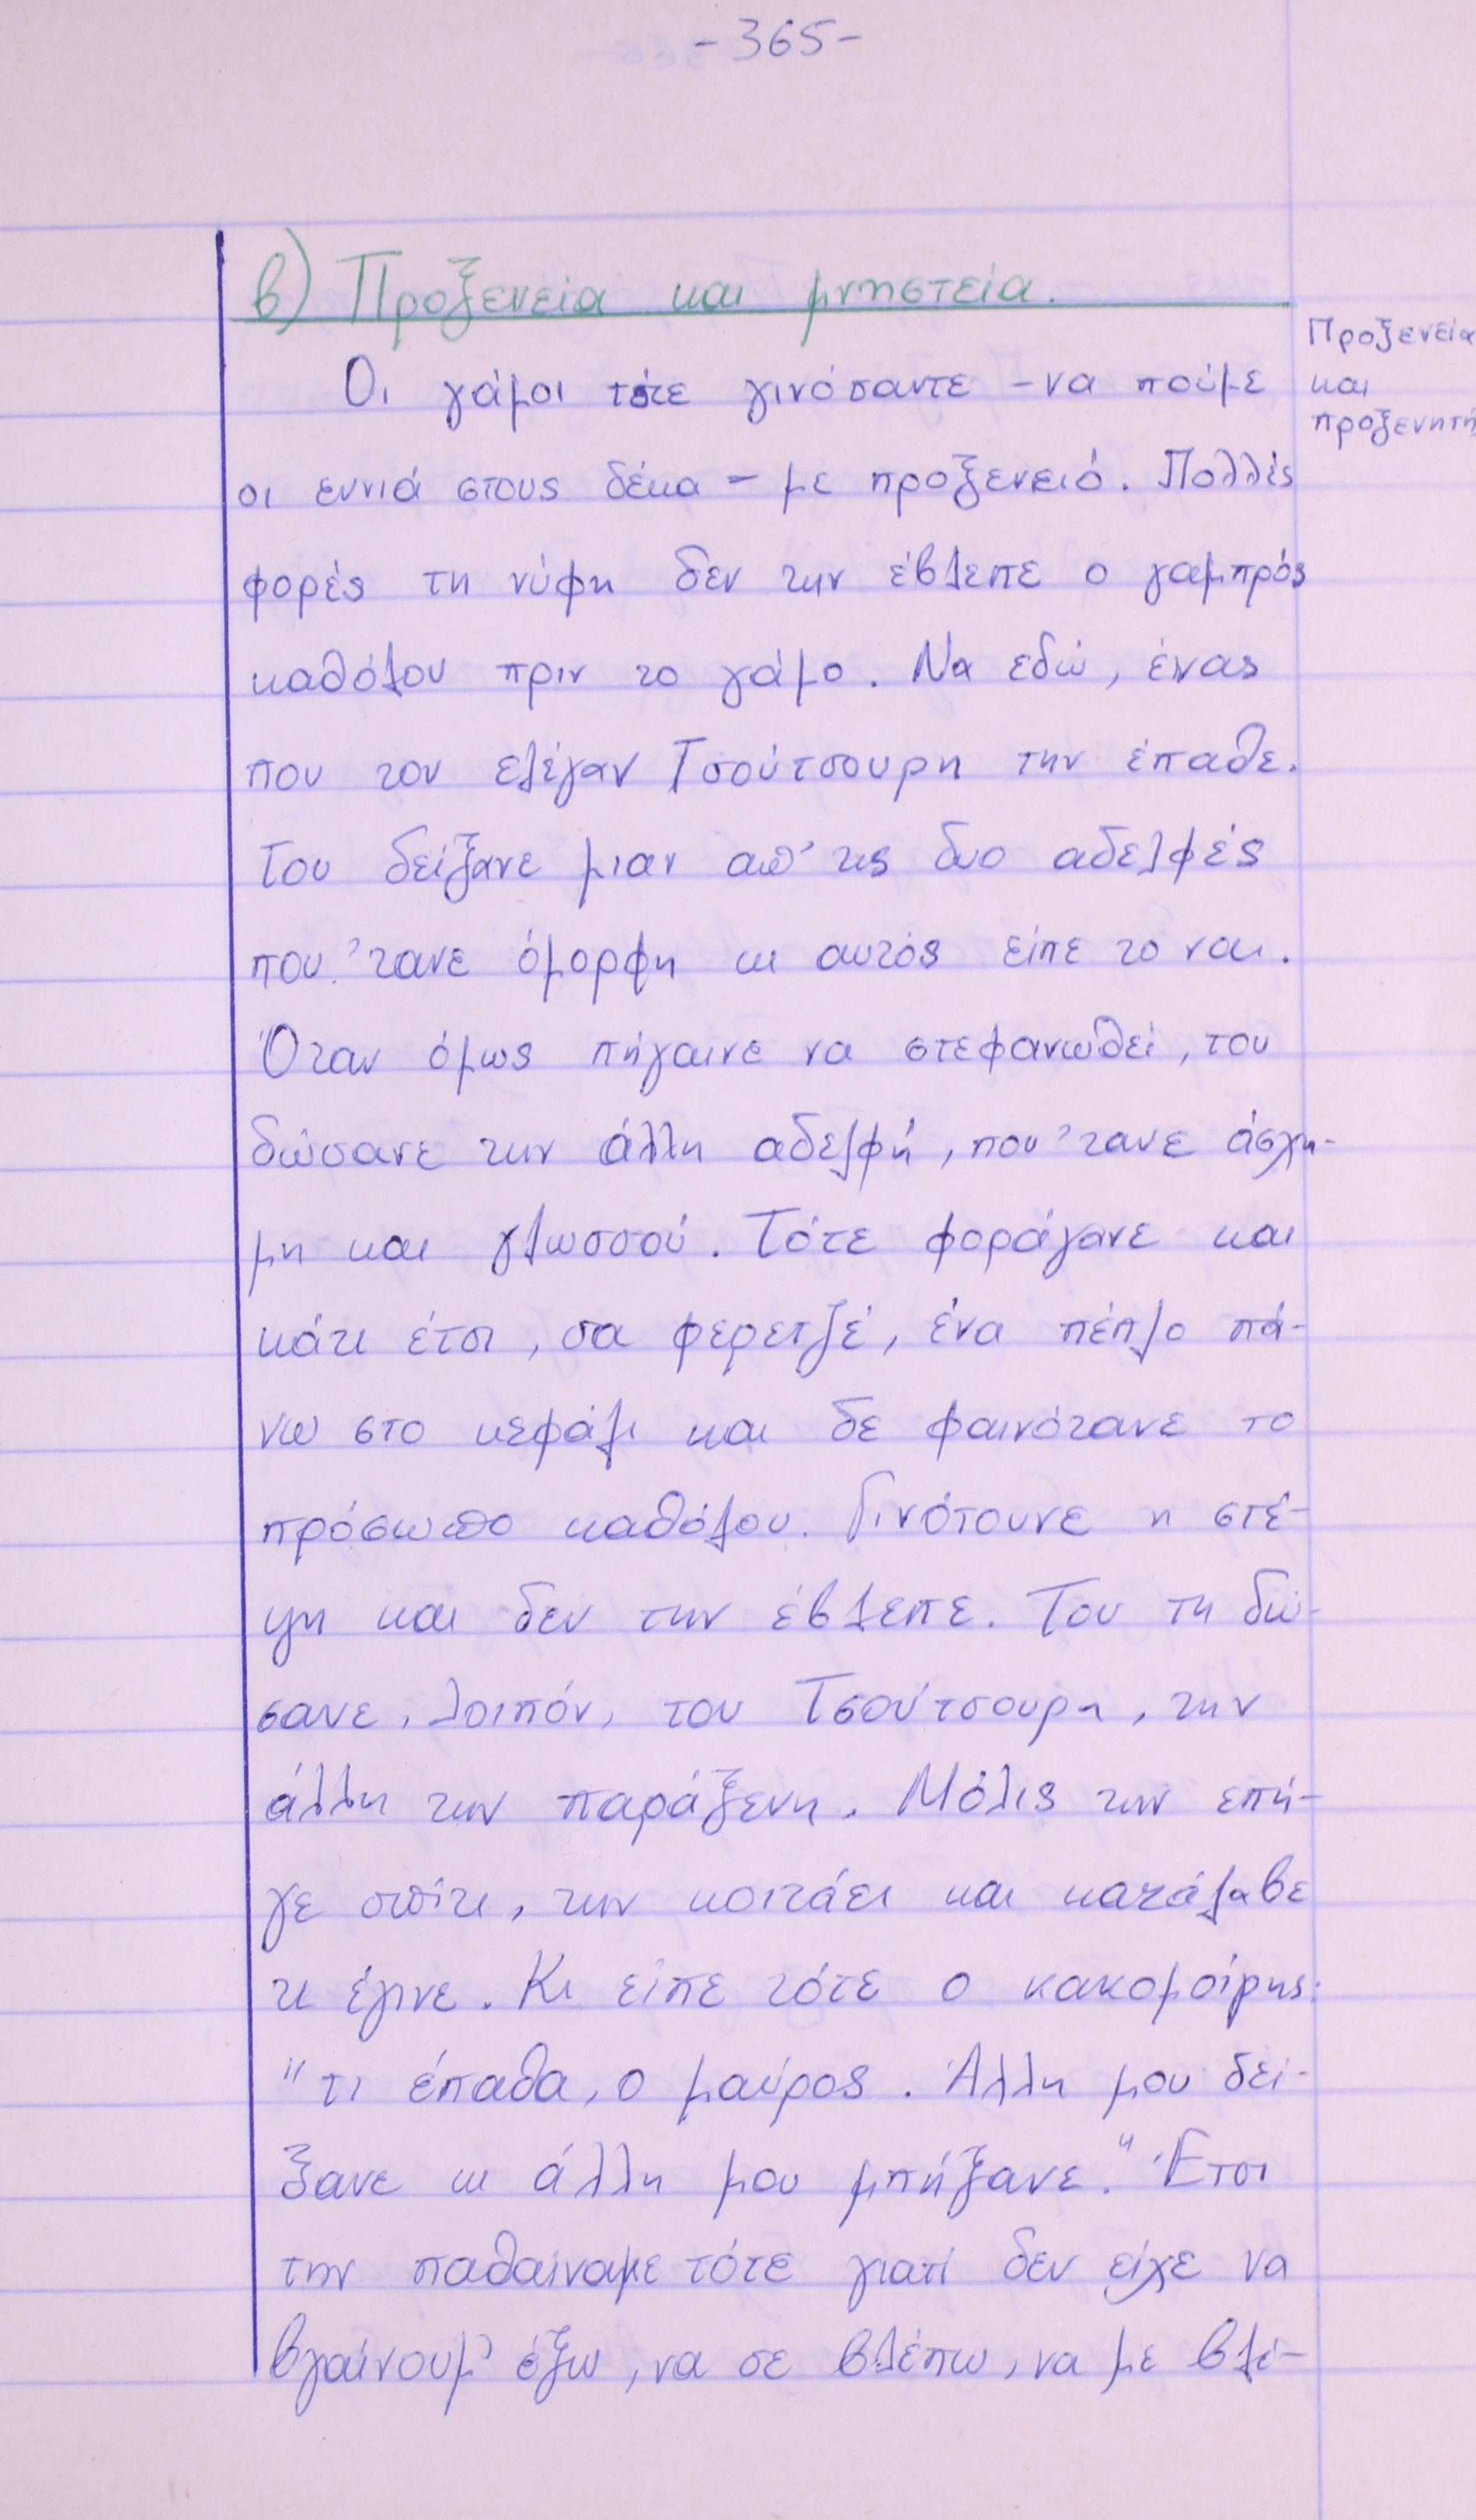 -365-
β) Προξενεία και μνηστεία.
Προξενεία
και
προξενητή
Οι γάμοι τότε γινόσαντε - να πούμε
οι εννιά στους δέκα - με προξενειό. Πολλές
φορές τη νύφη δεν την έβλεπε ο γαμπρός
καθόλου πριν το γάμο. Να εδώ, ένας
που τον ελέγαν Τσούτσουρη την έπαθε.
Του δείξανε μιαν απ' τις δυο αδελφές
που 'τανε όμορφη κι αυτός είπε το ναι.
Όταν όμως πήγαινε να στεφανωθεί, του
δώσανε την άλλη αδελφή, που 'τανε άσχη-
μη και γλωσσού. Τότε φοράγανε και
κάτι έτσι, σα φερετζέ, ένα πέπλο πά-
νω στο κεφάλι και δε φαινότανε το
πρόσωπο καθόλου. Γινότουνε η στέ-
ψη και δεν την έβλεπε. Του τη δώ-
σανε, λοιπόν, του Τσούτσουρη, την
άλλη την παράξενη. Μόλις την επή-
γε σπίτι, την κοιτάει και κατάλαβε
τι έγινε. Κι είπε τότε ο κακομοίρης:
"τι έπαθα, ο μαύρος. Άλλη μου δεί-
ξανε κι άλλη μου μπήξανε." Έτσι
την παθαίναμε τότε γιατί δεν είχε να
βγαίνουμ' έξω, να σε βλέπω, να με βλέ-